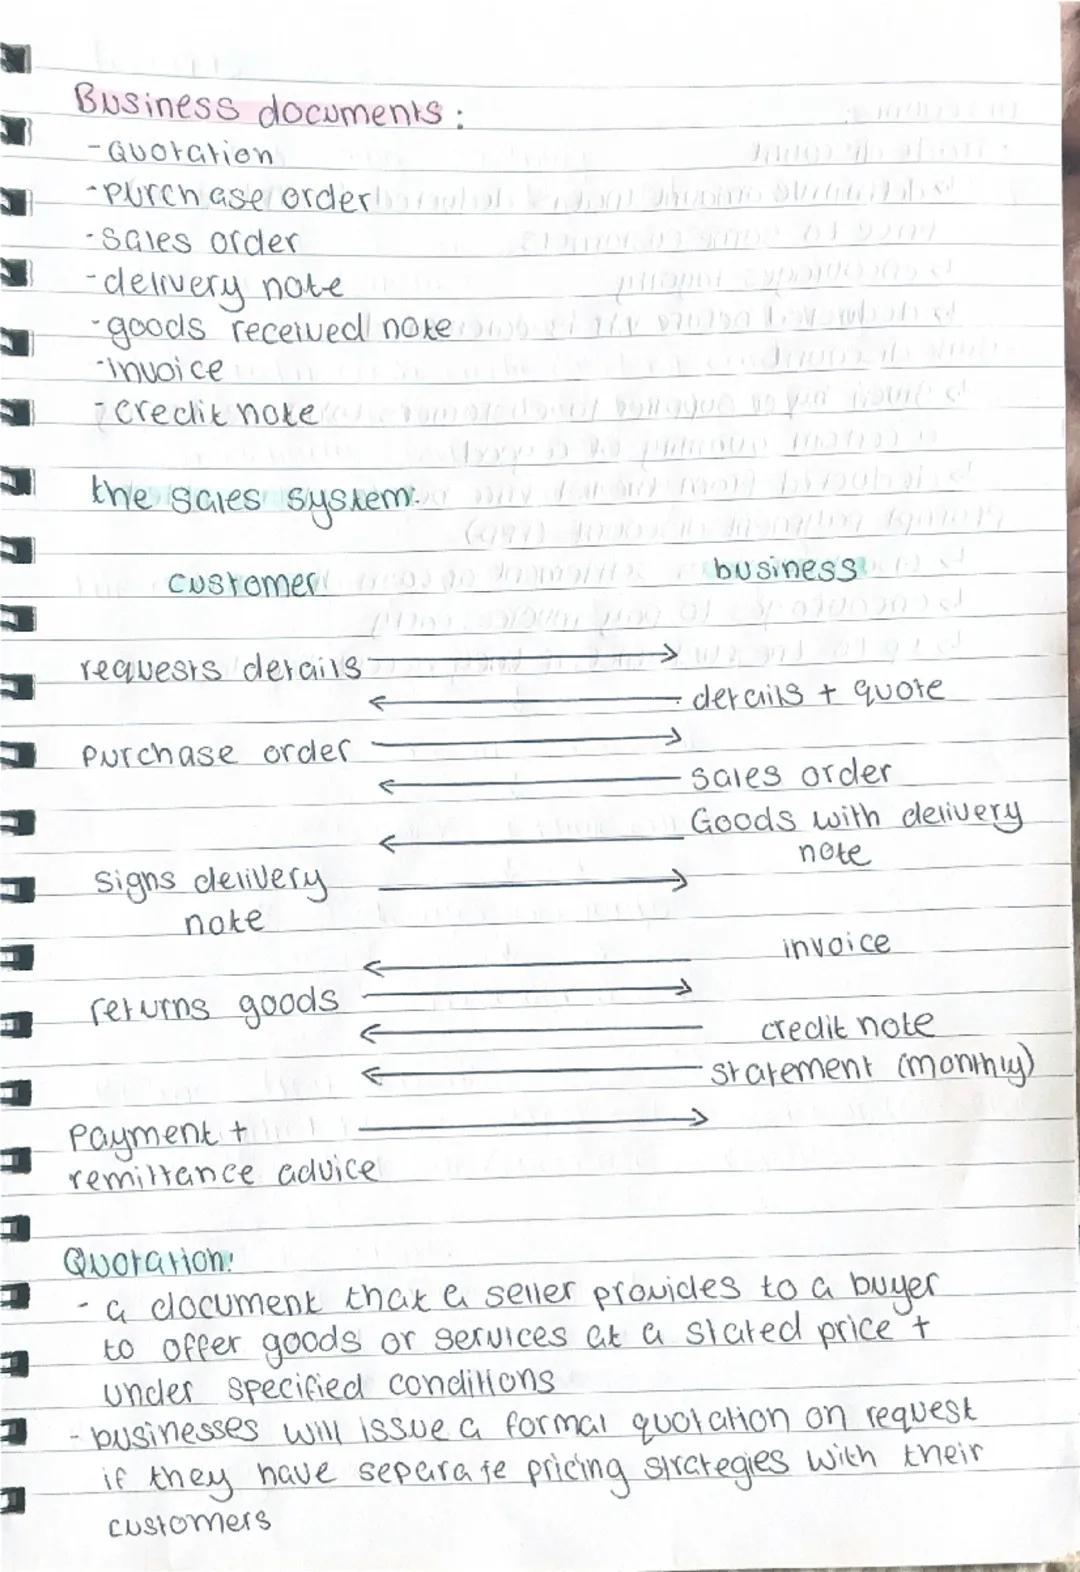 Business documents:
- Quotation
- Purchase order
- Sales order
- delivery note
- goods received note
- invoice
- credit note
the sales system:
customer business
requests details →
← details + quote
Purchase order →
← Sales order
← Goods with delivery
note
signs delivery →
note
← invoice
returns goods →
← credit note
← statement (monthly)
Payment + →
remittance advice
Quotation:
- a document that a seller provides to a buyer
to offer goods or services at a stated price +
under specified conditions
- businesses will issue a formal quotation on request
if they have separate pricing strategies with their
customers